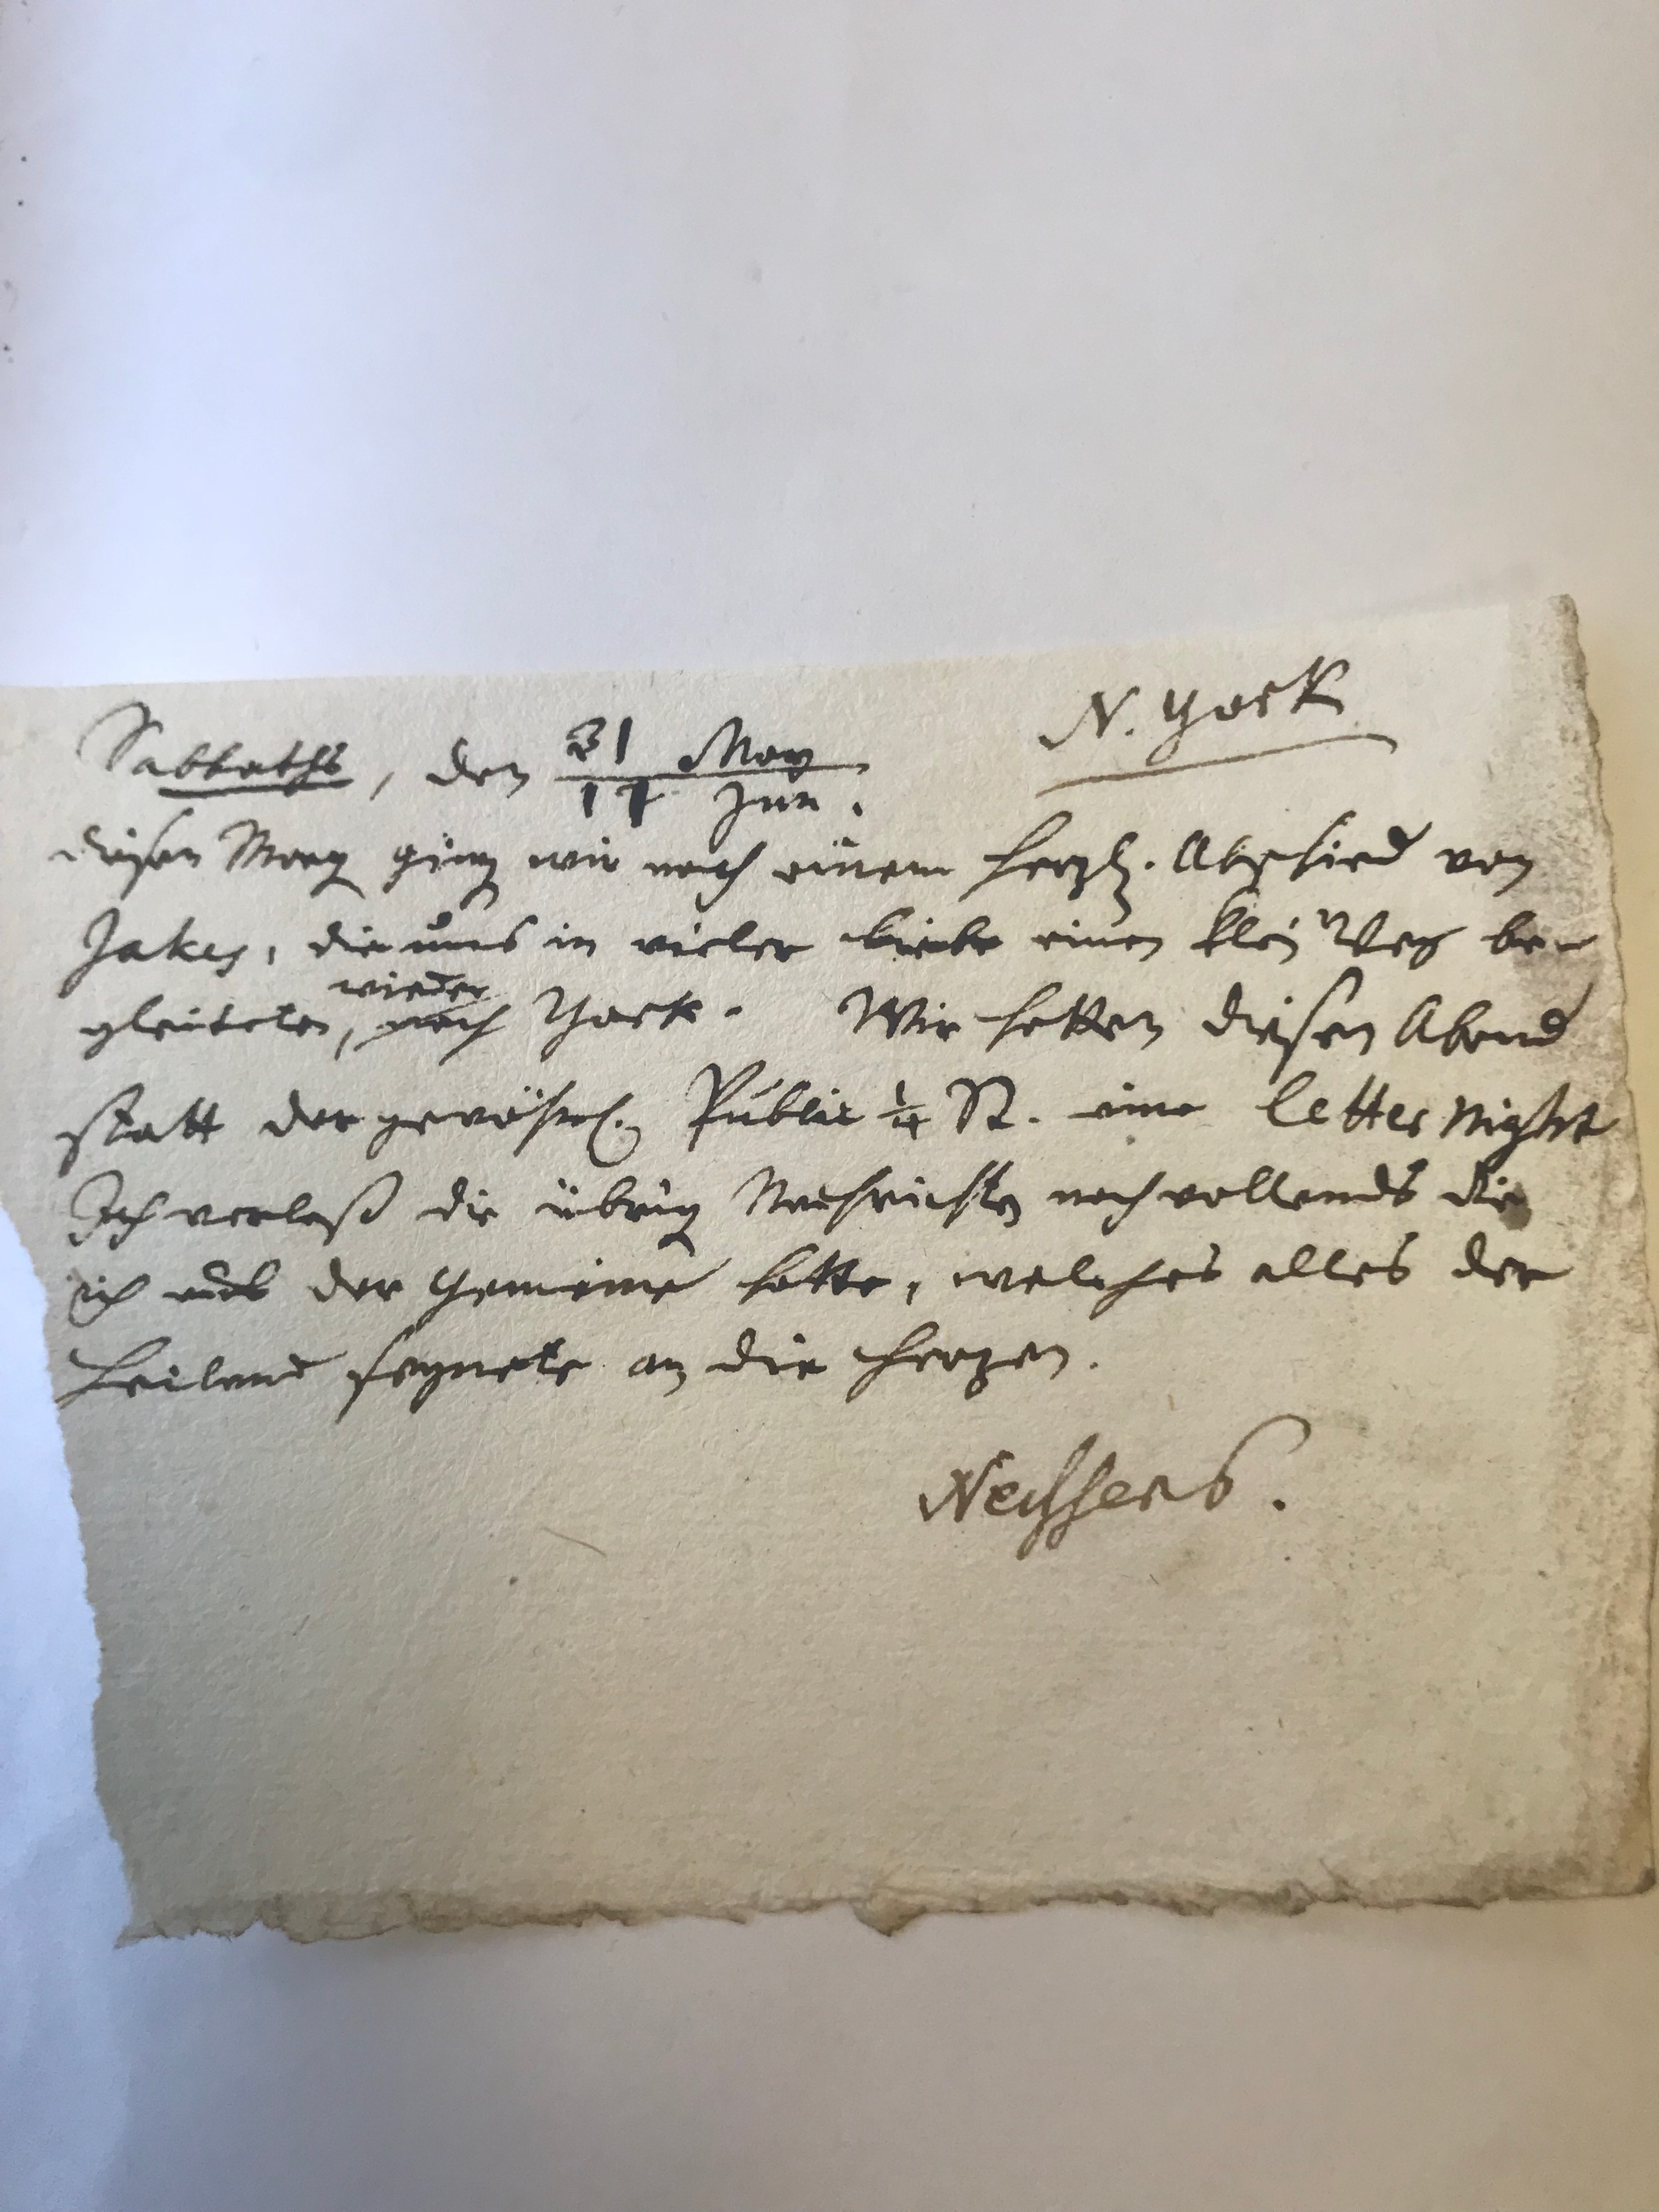 N. York
Sabbaths, den 31 May
11 Jun.
diesen Morg ging wir nach einem herzl. Abschied von
Jakes, die uns in vieler Liebe einen klei Weg be-
gleiteten, wieder nach York. Wir hatten diesen Abend
statt der gewöhnl. Public 1/4 St. eine letter Night
Ich verlaß die übrig Nachrichten noch vollends die
ich aus der Gemeine hatte, welches alles der
Heiland segnete an die Herzen.